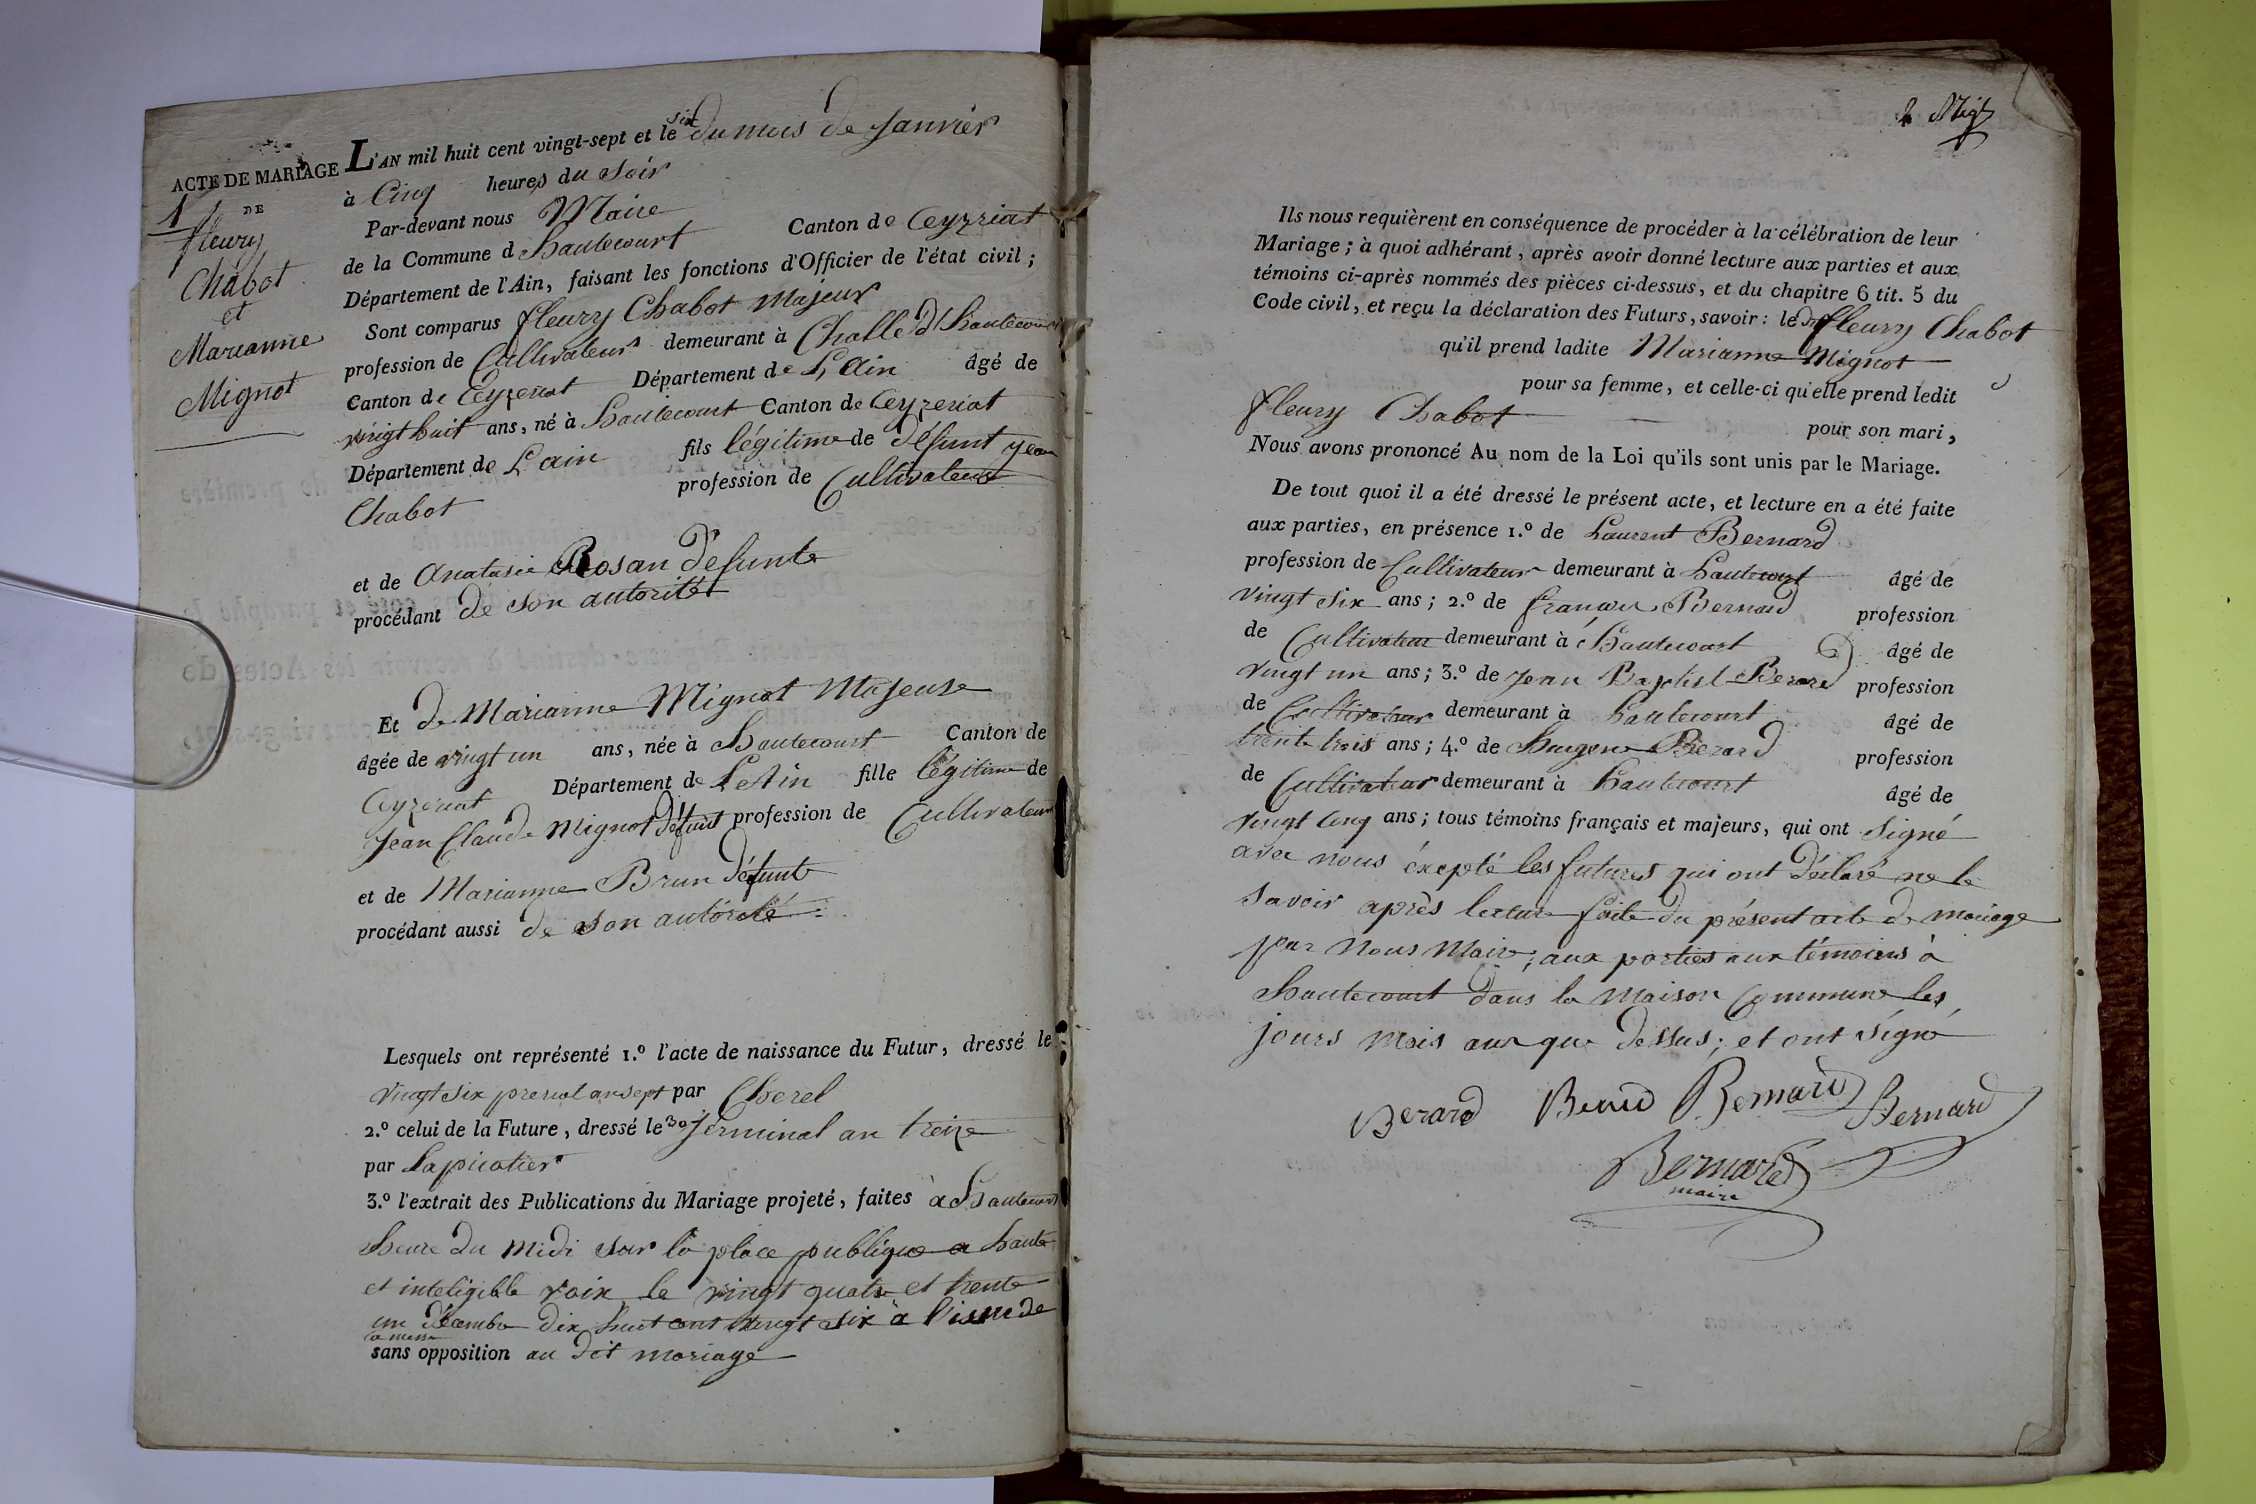 ACTE DE MARIAGE
1
DE
fleury
Chabot
et
Marianne
Mignot
L'AN mil huit cent vingt-sept et le six du mois de Janvier
à Cinq heures du Soir
Par-devant nous Maire
de la Commune d hautecourt Canton de Ceyzriat
Département de l'Ain, faisant les fonctions d'Officier de l'état civil ;
Sont comparus fleury Chabot Majeur
profession de Cultivateur demeurant à Challe d'hautecourt
Canton de Ceyzeriat Département de L'Ain âgé de
vingt huit ans, né à hautecourt Canton de Ceyzeriat
Département de L'ain fils légitime de défunt jean
Chabot profession de Cultivateur
et de Anatasie Rosan défunte
procédant de son autorité
Et de Marianne Mignot Majeuse
âgée de vingt un ans, née à hautecourt Canton de
Ceyzeriat Département de L'Ain fille légitime de
Jean Claude Mignot défunt profession de Cultivateur
et de Marianne Brun défunte
procédant aussi de son autorité
Lesquels ont représenté 1.º l'acte de naissance du Futur, dressé le
vingt six prerial an sept par Cherel
2.º celui de la Future, dressé le 30 jerminal an treize
par Lapicotier
3.º l'extrait des Publications du Mariage projeté, faites à hautecourt
heure du midi sur la place publique a haute
et inteligible voix le vingt quatre et trente
un décembre dix huit cent vingt six à l'issue de
la messe
sans opposition au dit mariage
2
Ils nous requièrent en conséquence de procéder à la célébration de leur
Mariage ; à quoi adhérant, après avoir donné lecture aux parties et aux
témoins ci-après nommés des pièces ci-dessus, et du chapitre 6 tit. 5 du
Code civil, et reçu la déclaration des Futurs, savoir : le dit fleury Chabot
qu'il prend ladite Marianne Mignot
pour sa femme, et celle-ci qu'elle prend ledit
fleury Chabot pour son mari,
Nous avons prononcé Au nom de la Loi qu'ils sont unis par le Mariage.
De tout quoi il a été dressé le présent acte, et lecture en a été faite
aux parties, en présence 1.º de Laurent Bernard
profession de Cultivateur demeurant à hautecourt âgé de
vingt six ans ; 2.º de françois Bernard profession
de Cultivateur demeurant à hautecourt âgé de
vingt un ans ; 3.º de jean Baptist Berard profession
de Cultivateur demeurant à hautecourt âgé de
trente trois ans ; 4.º de hugene Berard profession
de Cultivateur demeurant à hautecourt âgé de
vingt cinq ans ; tous témoins français et majeurs, qui ont signé
avec nous éxcepté les futures qui ont déclaré ne le
savoir après lecture faite du présent acte de mariage
par nous Maire, aux parties aux témoins à
hautecourt dans la maison Commune les
jours mois an que dessus ; et ont signé
Berard Berard Bernard Bernard
Bernard
maire